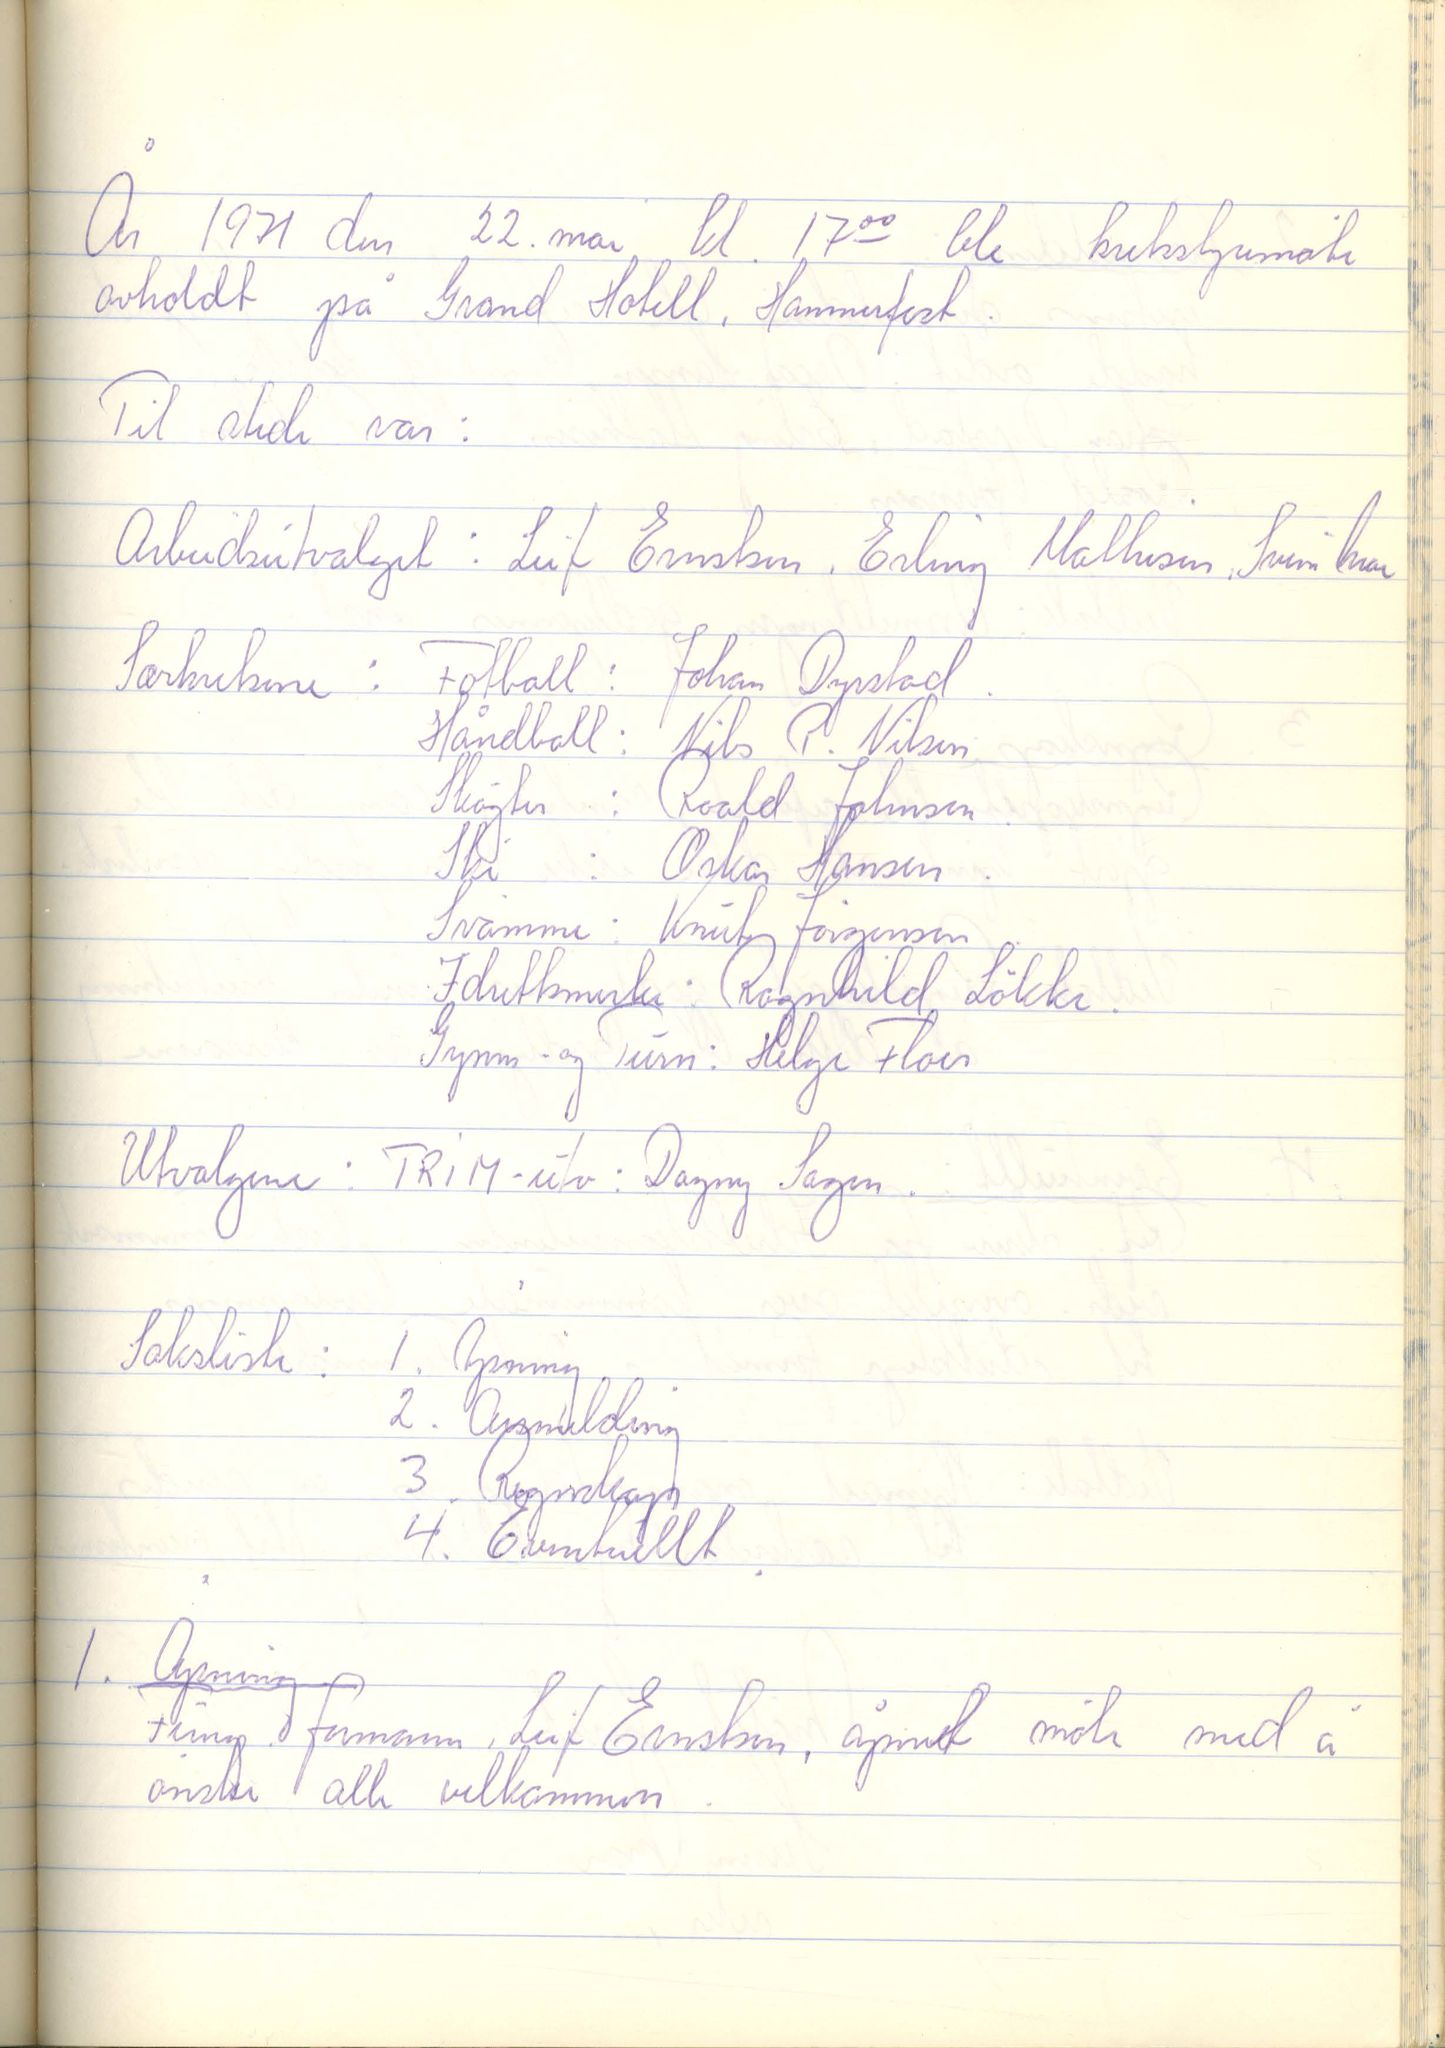 År 1971 den 22. mai kl. 17⁰⁰ ble kretsstyremøte
avholdt på Grand Hotell, Hammerfest.
Til stede var:
Arbeidsutvalget: Leif Ernstsen, Erling Mathisen, Svein
Særkretsene: Fotball: Johan Dyrstad.
Håndball: Nils P. Nilsen
Skøyter: Roald Johnsen.
Ski: Oskar Hansen.
Svømme: Knut Jørgensen
Idrettsmerke: Ragnhild Løkke.
Gymn- og Turn: Helge Floer
Utvalgene: TRIM-utv: Dagny Sagen.
Saksliste: 1. Åpning
2. Årsmelding
3. Regnskap
4. Eventuellt.
1. Åpning
Fung. formann, Leif Ernstsen, åpnet møte med å
ønske alle velkommen.